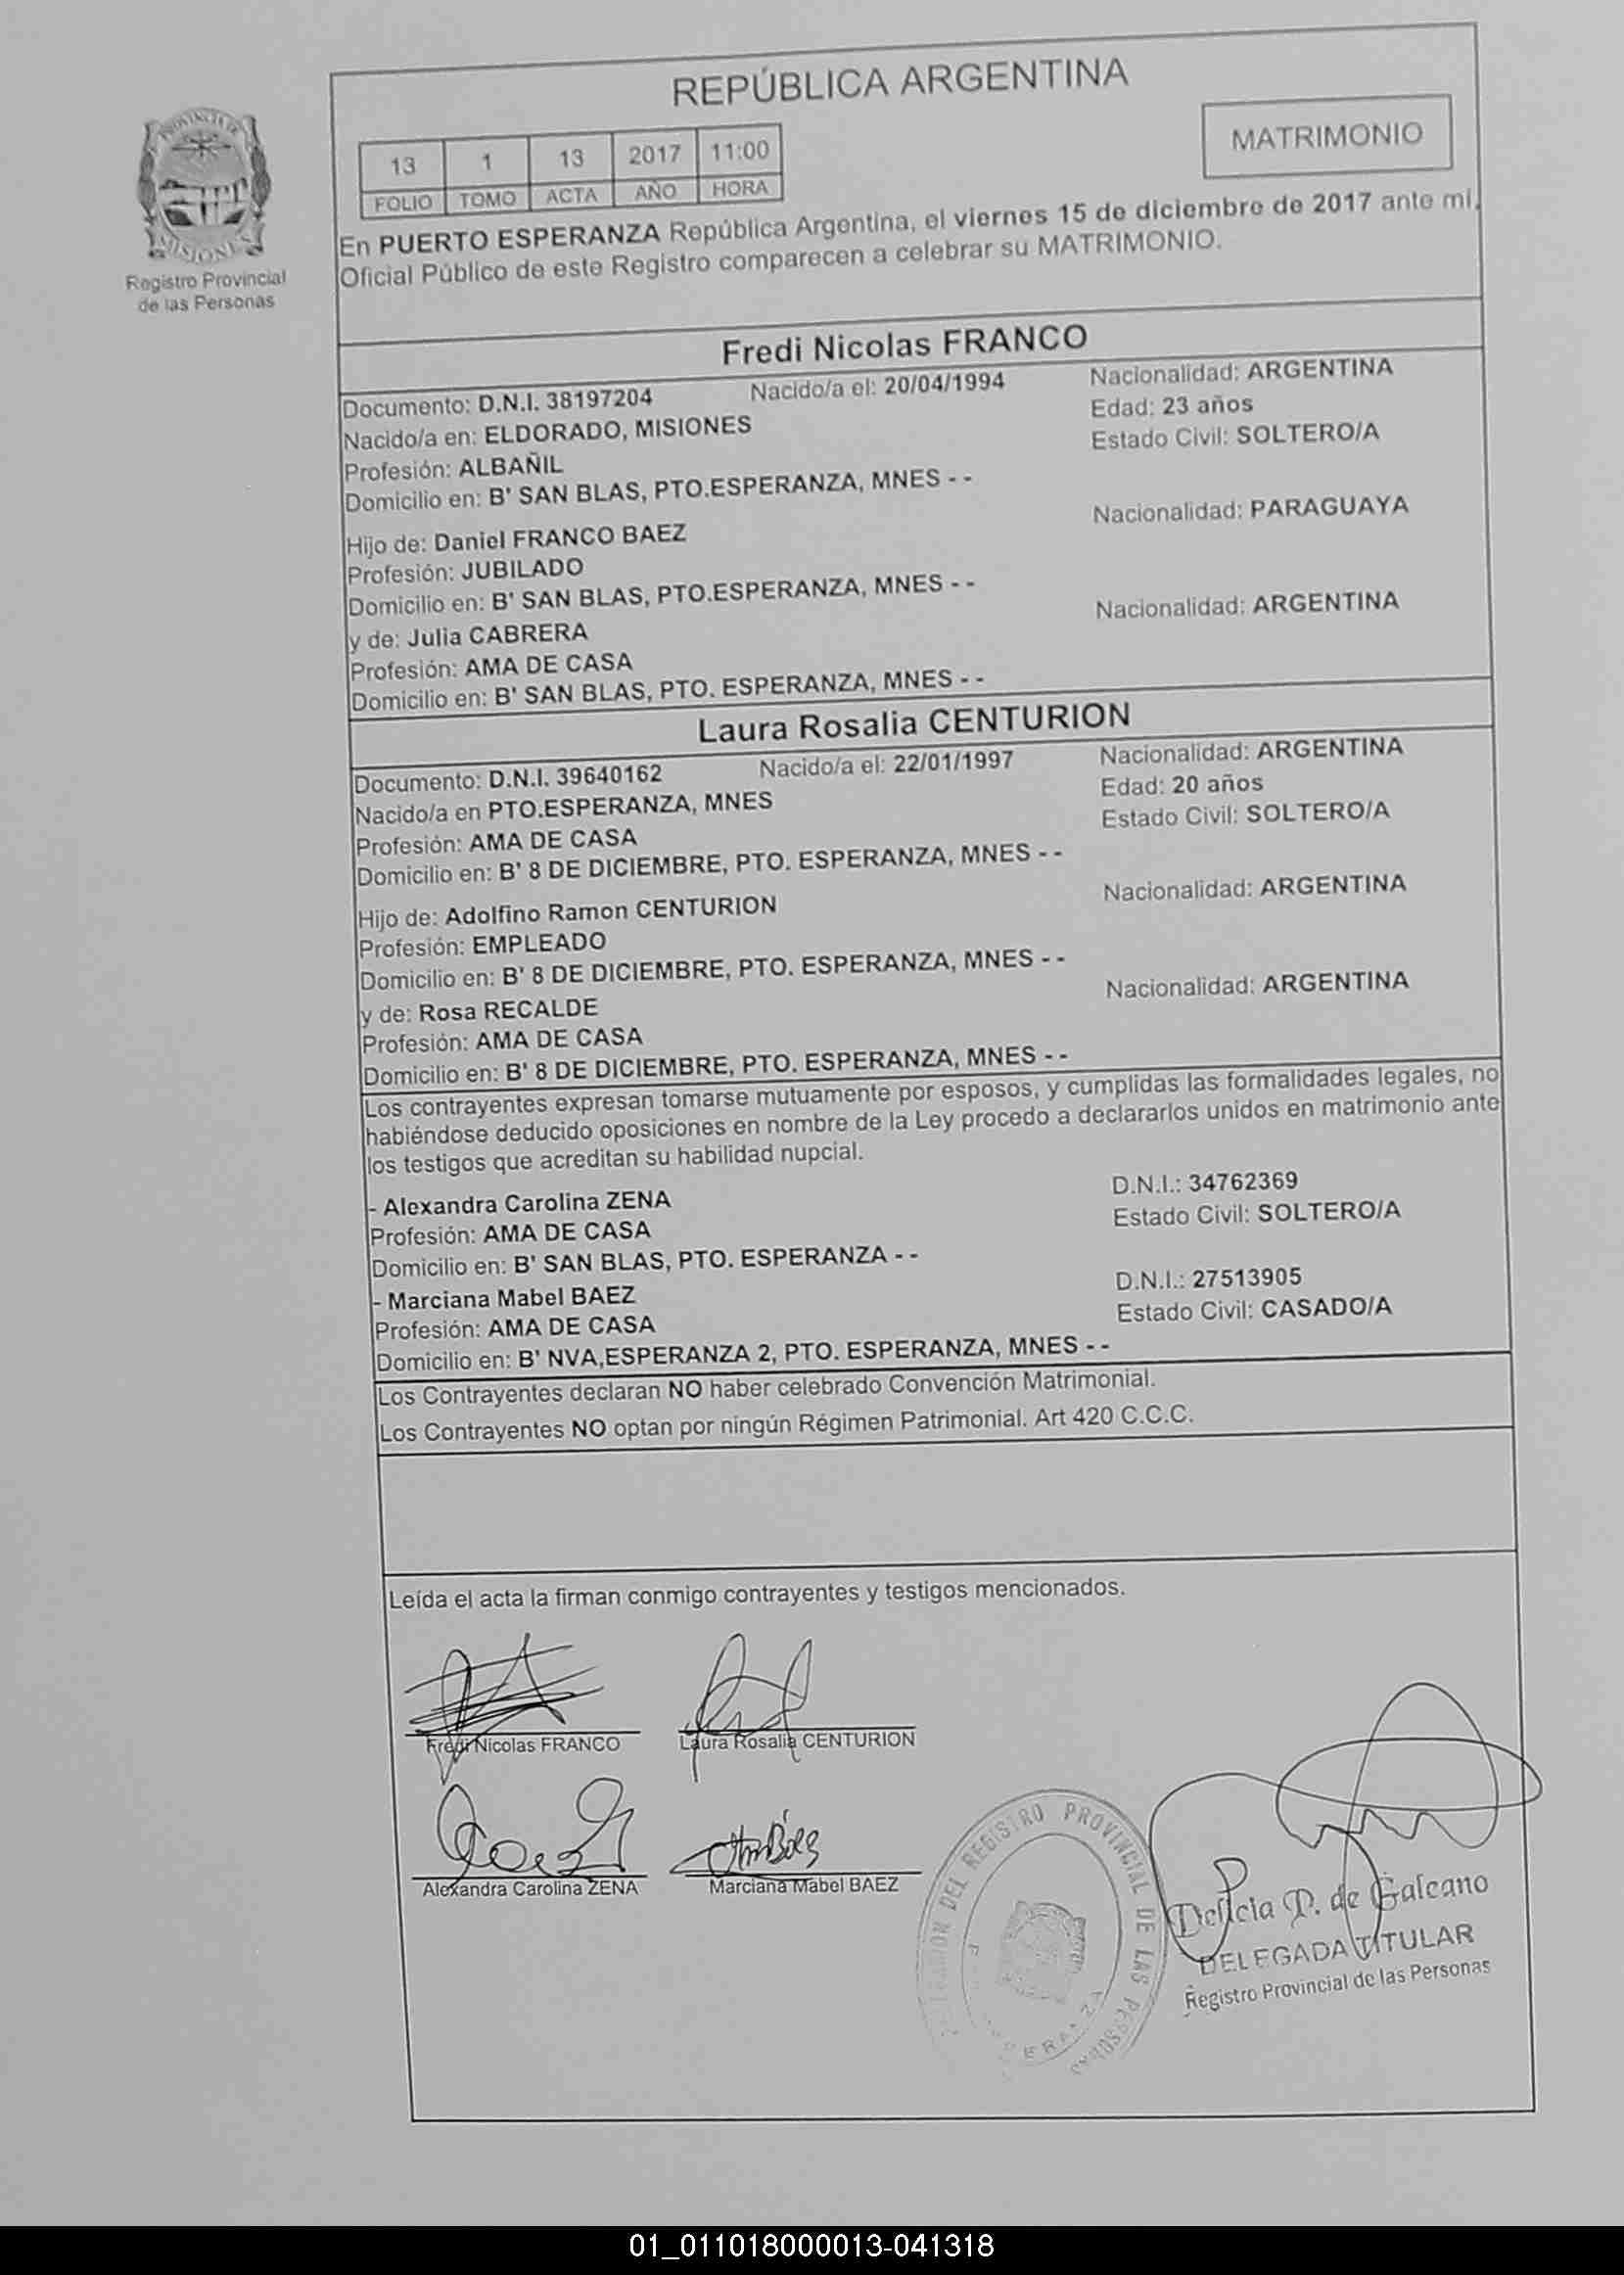 REPÚBLICA ARGENTINA
MATRIMONIO
13 1 13 2017 11:00
FOLIO TOMO ACTA AÑO HORA
PROVINCIA DE
MISIONES
Registro Provincial
de las Personas
En PUERTO ESPERANZA República Argentina, el viernes 15 de diciembre de 2017 ante mi,
Oficial Público de este Registro comparecen a celebrar su MATRIMONIO.
Fredi Nicolas FRANCO
Documento: D.N.I. 38197204 Nacido/a el: 20/04/1994 Nacionalidad: ARGENTINA
Nacido/a en: ELDORADO, MISIONES Edad: 23 años
Profesión: ALBAÑIL Estado Civil: SOLTERO/A
Domicilio en: B' SAN BLAS, PTO.ESPERANZA, MNES - -
Hijo de: Daniel FRANCO BAEZ Nacionalidad: PARAGUAYA
Profesión: JUBILADO
Domicilio en: B' SAN BLAS, PTO.ESPERANZA, MNES - -
y de: Julia CABRERA Nacionalidad: ARGENTINA
Profesión: AMA DE CASA
Domicilio en: B' SAN BLAS, PTO. ESPERANZA, MNES - -
Laura Rosalia CENTURION
Documento: D.N.I. 39640162 Nacido/a el: 22/01/1997 Nacionalidad: ARGENTINA
Nacido/a en PTO.ESPERANZA, MNES Edad: 20 años
Profesión: AMA DE CASA Estado Civil: SOLTERO/A
Domicilio en: B' 8 DE DICIEMBRE, PTO. ESPERANZA, MNES - -
Hijo de: Adolfino Ramon CENTURION Nacionalidad: ARGENTINA
Profesión: EMPLEADO
Domicilio en: B' 8 DE DICIEMBRE, PTO. ESPERANZA, MNES - -
y de: Rosa RECALDE Nacionalidad: ARGENTINA
Profesión: AMA DE CASA
Domicilio en: B' 8 DE DICIEMBRE, PTO. ESPERANZA, MNES - -
Los contrayentes expresan tomarse mutuamente por esposos, y cumplidas las formalidades legales, no
habiéndose deducido oposiciones en nombre de la Ley procedo a declararlos unidos en matrimonio ante
los testigos que acreditan su habilidad nupcial.
- Alexandra Carolina ZENA D.N.I.: 34762369
Profesión: AMA DE CASA Estado Civil: SOLTERO/A
Domicilio en: B' SAN BLAS, PTO. ESPERANZA - -
- Marciana Mabel BAEZ D.N.I.: 27513905
Profesión: AMA DE CASA Estado Civil: CASADO/A
Domicilio en: B' NVA,ESPERANZA 2, PTO. ESPERANZA, MNES - -
Los Contrayentes declaran NO haber celebrado Convención Matrimonial.
Los Contrayentes NO optan por ningún Régimen Patrimonial. Art 420 C.C.C.
Leída el acta la firman conmigo contrayentes y testigos mencionados.
Fredi Nicolas FRANCO Laura Rosalia CENTURION
Alexandra Carolina ZENA Marciana Mabel BAEZ
DEL REGISTRO PROVINCIAL DE LAS PERSONAS
Delicia P. de Galeano
DELEGADA TITULAR
Registro Provincial de las Personas
01_011018000013-041318